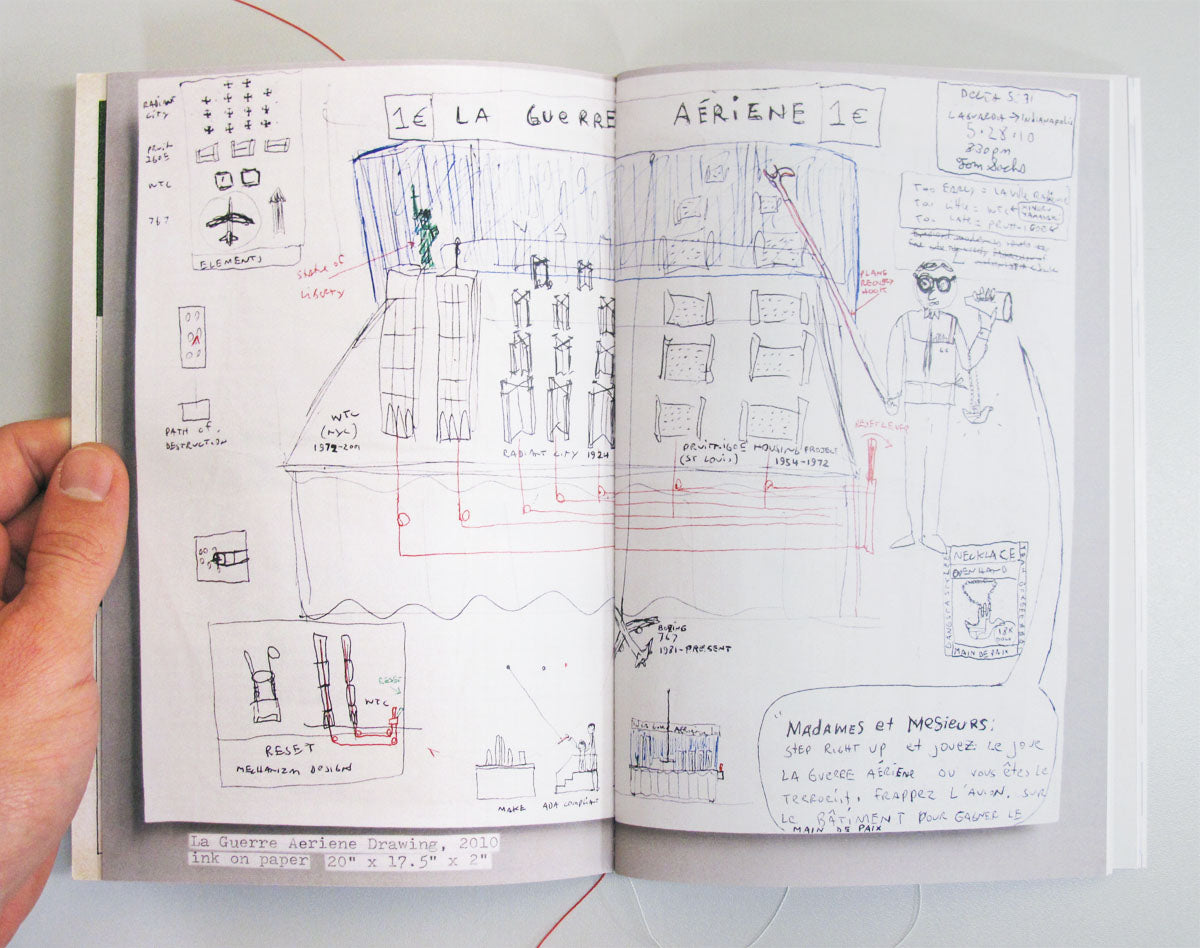 1€ LA GUERRE AÉRIENE 1€
RADIANT
CITY
WTC
767
ELEMENTS
DELTA
LAGUARDIA → Indianapolis
5.28.10
330pm
Tom Sachs
Too EARLY = LA Ville
Too Late = WTC
Too LATE =
Statue of
Liberty
PLANE
HOOK
PATH of
DESTRUCTION
WTC
(NYC)
1972-2001
RADIANT CITY 1924
HOUSING PROJECT
(ST LOUIS)
1954-1972
RESET LEVER
NECKLACE
MAIN DE PAIX
BOEING
767
1981-PRESENT
WTC
RESET
MECHANIZM DESIGN
MAKE ADA COMPLIANT
"MADAMES et MESIEURS:
STEP RIGHT UP et jouez Le Joue
LA GUERRE AÉRIENE OU VOUS ÊTES LE
TERRORIST, FRAPPEZ L'AVION, SUR
LE BÂTIMENT POUR GAGNER LE
MAIN DE PAIX
La Guerre Aeriene Drawing, 2010
ink on paper 20" x 17.5" x 2"